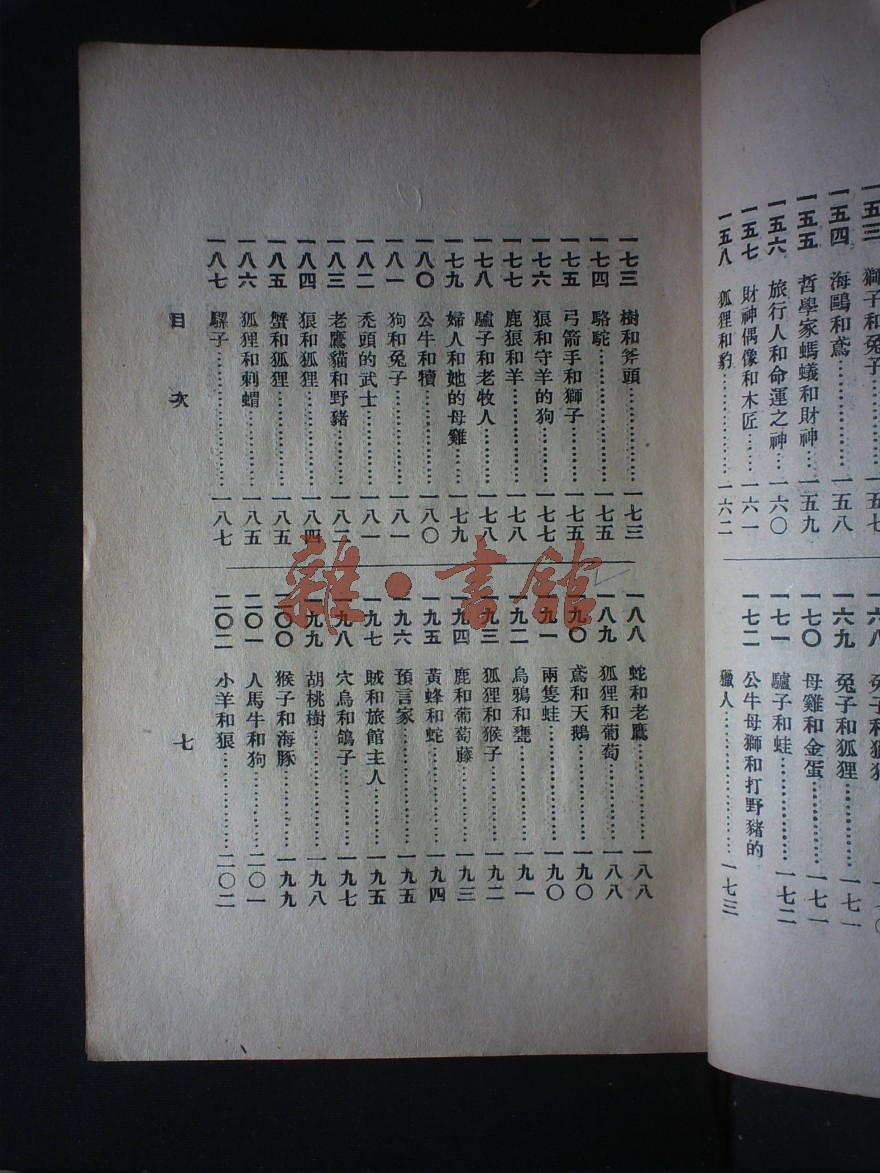 一五三 獅子和兔子……一五七
一五四 海鷗和鳶……一五八
一五五 哲學家螞蟻和財神…一五九
一五六 旅行人和命運之神…一六〇
一五七 財神偶像和木匠……一六一
一五八 狐狸和豹…………一六二
一六八 兔子和獵狗
一六九 兔子和狐狸…………一七一
一七〇 母雞和金蛋…………一七一
一七一 驢子和蛙…………一七二
一七二 公牛母獅和打野豬的
獵人………………一七三
一七三 樹和斧頭…………一七三
一七四 駱駝………………一七五
一七五 弓箭手和獅子……一七五
一七六 狼和守羊的狗……一七七
一七七 鹿狼和羊…………一七八
一七八 驢子和老牧人……一七八
一七九 婦人和她的母雞…一七九
一八〇 公牛和犢…………一八〇
一八一 狗和兔子…………一八一
一八二 禿頭的武士………一八一
一八三 老鷹貓和野豬……一八二
一八四 狼和狐狸…………一八四
一八五 蟹和狐狸…………一八五
一八六 狐狸和刺蝟………一八五
一八七 騾子………………一八七
一八八 蛇和老鷹…………一八八
一八九 狐狸和葡萄………一八八
一九〇 鳶和天鵝…………一九〇
一九一 兩隻蛙……………一九〇
一九二 烏鴉和甕…………一九一
一九三 狐狸和猴子………一九二
一九四 鹿和葡萄藤………一九三
一九五 黃蜂和蛇…………一九四
一九六 預言家……………一九五
一九七 賊和旅館主人……一九五
一九八 穴鳥和鴿子………一九七
一九九 胡桃樹……………一九八
二〇〇 猴子和海豚………一九九
二〇一 人馬牛和狗………二〇一
二〇二 小羊和狼…………二〇二
目次
七
雜·書館